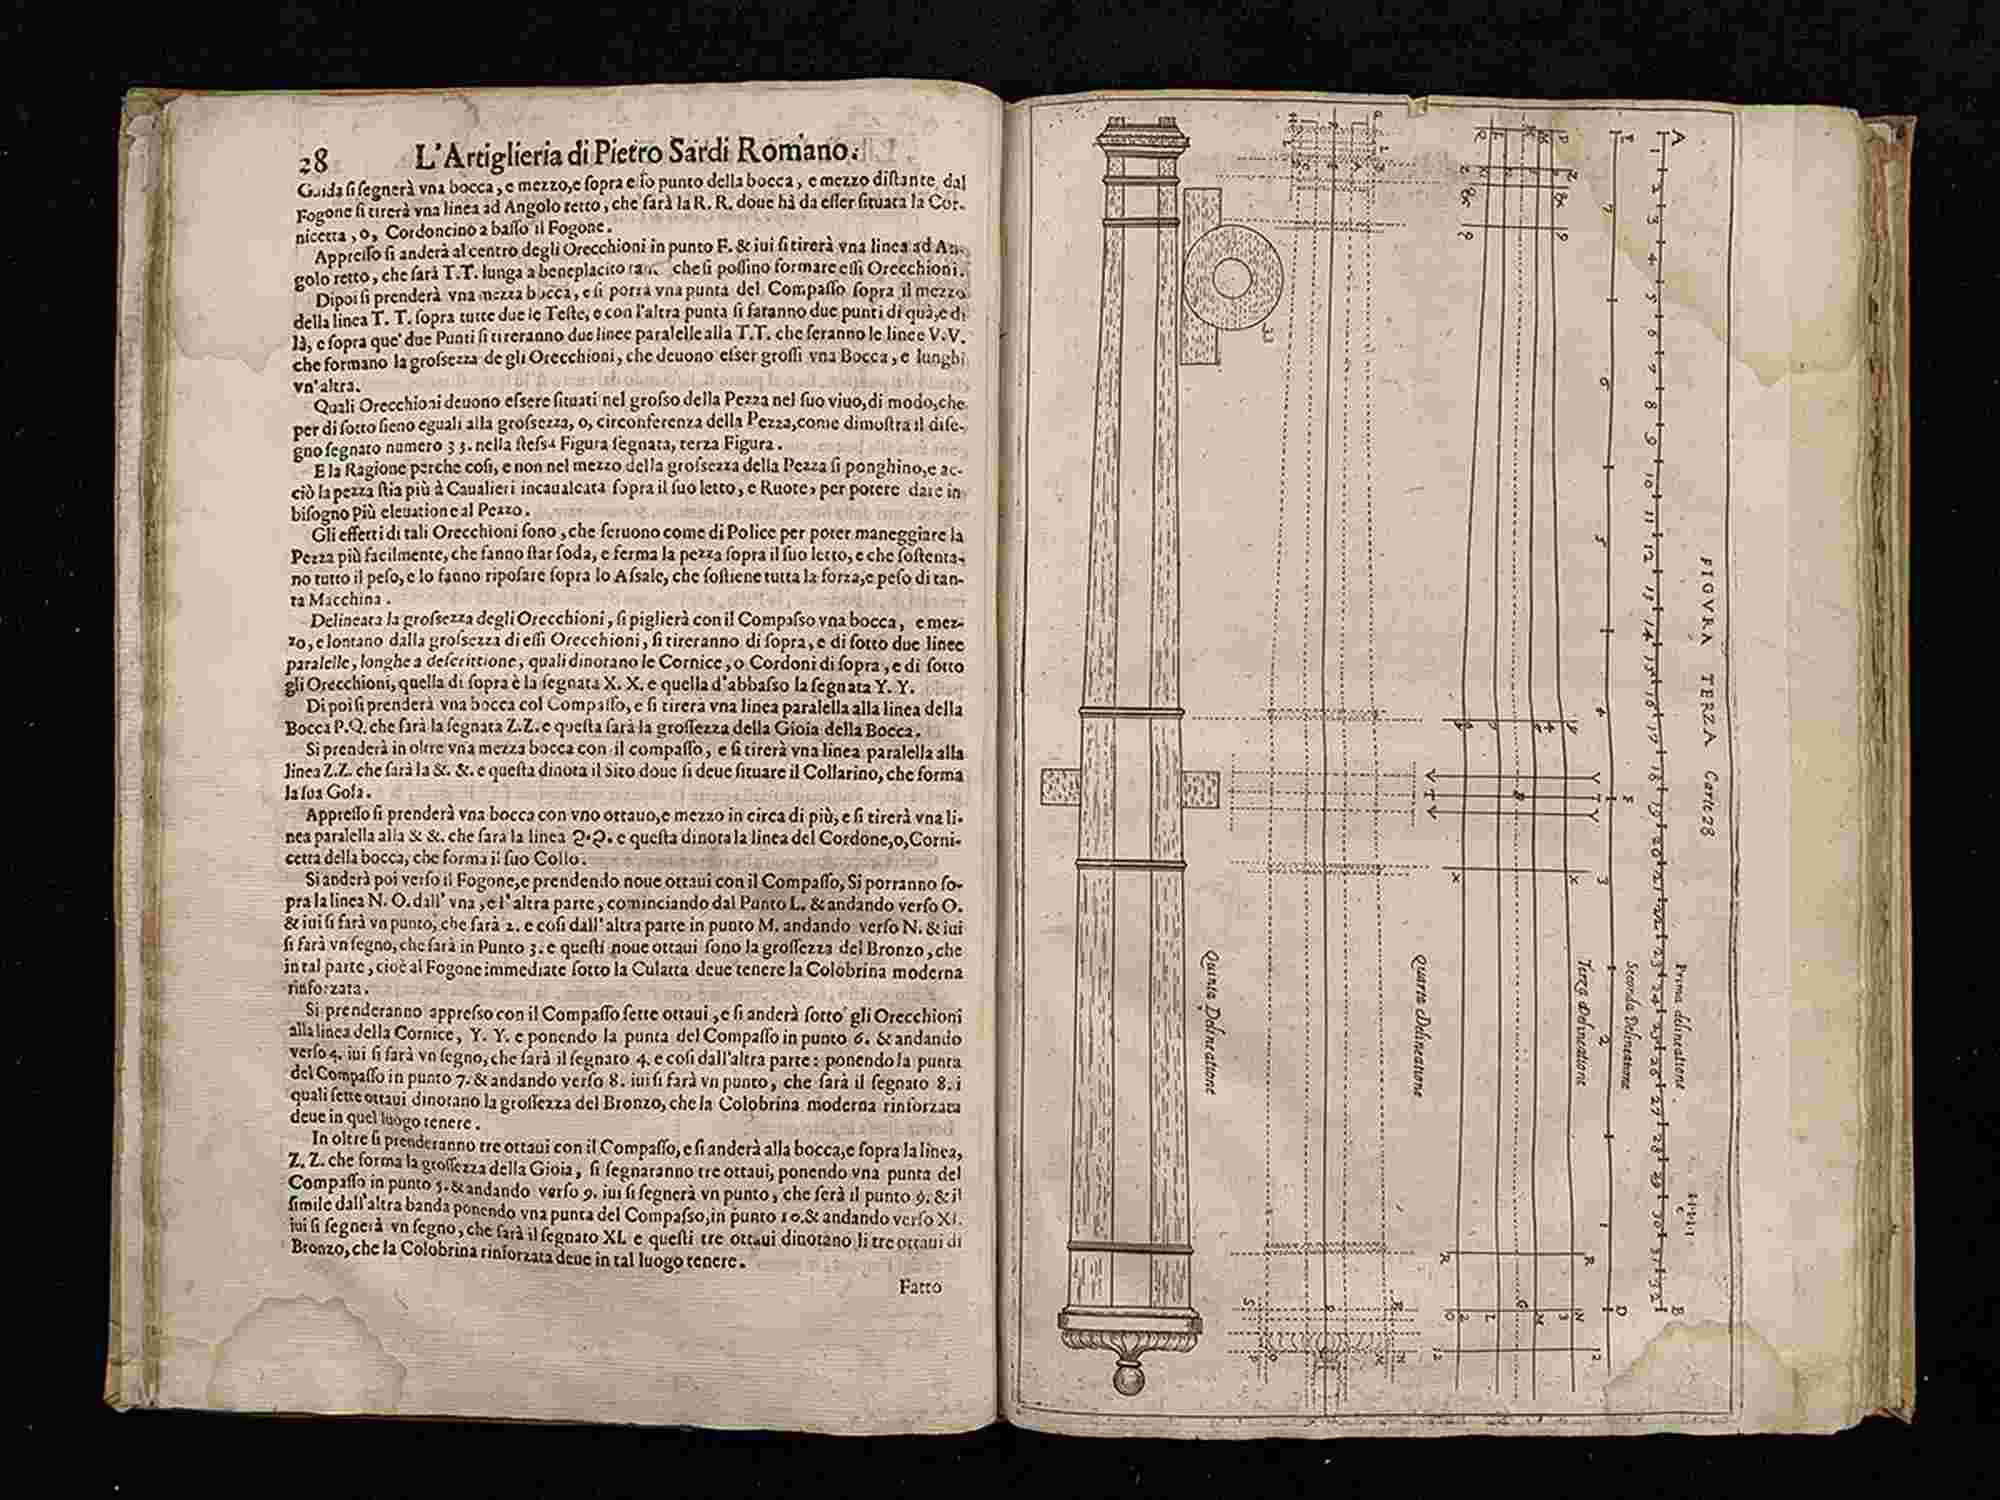 28 L'Artiglieria di Pietro Sardi Romano.
Guida si segnerà vna bocca, e mezzo, e sopra esso punto della bocca, e mezzo distante dal
Fogone si tirerà vna linea ad Angolo retto, che sarà la R. R. doue hà da esser situata la Cor-
nicetta, o, Cordoncino a basso il Fogone.
Appresso si anderà al centro degli Orecchioni in punto F. & iui si tirerà vna linea ad An-
golo retto, che sarà T.T. lunga a beneplacito che si possino formare essi Orecchioni.
Dipoi si prenderà vna mezza bocca, e si porrà vna punta del Compasso sopra il mezzo
della linea T. T. sopra tutte due le Teste, e con l'altra punta si faranno due punti di quà, e di
là, e sopra que' due Punti si tireranno due linee paralelle alla T.T. che seranno le linee V.V.
che formano la grossezza degli Orecchioni, che deuono esser grossi vna Bocca, e lunghi
vn'altra.
Quali Orecchioni deuono essere situati nel grosso della Pezza nel suo viuo, di modo, che
per di sotto sieno eguali alla grossezza, o, circonferenza della Pezza, come dimostra il dise-
gno segnato numero 33. nella stessa Figura segnata, terza Figura.
E la Ragione perche cosi, e non nel mezzo della grossezza della Pezza si ponghino, e ac-
ciò la pezza stia più à Caualieri incaualcata sopra il suo letto, e Ruote, per potere dare in
bisogno più eleuatione al Pezzo.
Gli effetti di tali Orecchioni sono, che seruono come di Police per poter maneggiare la
Pezza più facilmente, che fanno star soda, e ferma la pezza sopra il suo letto, e che sostenta-
no tutto il peso, e lo fanno riposare sopra lo Assale, che sostiene tutta la forza, e peso di tan-
ta Macchina.
Delineata la grossezza degli Orecchioni, si piglierà con il Compasso vna bocca, e mez-
zo, e lontano dalla grossezza di essi Orecchioni, si tireranno di sopra, e di sotto due linee
paralelle, longhe a descrittione, quali dinotano le Cornice, o Cordoni di sopra, e di sotto
gli Orecchioni, quella di sopra è la segnata X. X. e quella d'abbasso la segnata Y. Y.
Di poi si prenderà vna bocca col Compasso, e si tirerà vna linea paralella alla linea della
Bocca P.Q. che farà la segnata Z.Z. e questa sarà la grossezza della Gioia della Bocca.
Si prenderà in oltre vna mezza bocca con il compasso, e si tirerà vna linea paralella alla
linea Z.Z. che sarà la &. &. e questa dinota il Sito doue si deue situare il Collarino, che forma
la sua Gola.
Appresso si prenderà vna bocca con vno ottauo, e mezzo in circa di più, e si tirerà vna li-
nea paralella alla & &. che sarà la linea Ꝯ.Ꝯ. e questa dinota la linea del Cordone, o, Corni-
cetta della bocca, che forma il suo Collo.
Si anderà poi verso il Fogone, e prendendo noue ottaui con il Compasso, Si porranno so-
pra la linea N. O. dall' vna, e l'altra parte, cominciando dal Punto L. & andando verso O.
& iui si farà vn punto, che sarà 2. e cosi dall'altra parte in punto M. andando verso N. & iui
si farà vn segno, che sarà in Punto 3. e questi noue ottaui sono la grossezza del Bronzo, che
in tal parte, cioè al Fogone immediate sotto la Culatta deue tenere la Colobrina moderna
rinforzata.
Si prenderanno appresso con il Compasso sette ottaui, e si anderà sotto gli Orecchioni
alla linea della Cornice, Y. Y. e ponendo la punta del Compasso in punto 6. & andando
verso 4. iui si farà vn segno, che sarà il segnato 4. e cosi dall'altra parte: ponendo la punta
del Compasso in punto 7. & andando verso 8. iui si farà vn punto, che sarà il segnato 8. i
quali sette ottaui dinotano la grossezza del Bronzo, che la Colobrina moderna rinforzata
deue in quel luogo tenere.
In oltre si prenderanno tre ottaui con il Compasso, e si anderà alla bocca, e sopra la linea,
Z. Z. che forma la grossezza della Gioia, si segnaranno tre ottaui, ponendo vna punta del
Compasso in punto 5. & andando verso 9. iui si segnerà vn punto, che serà il punto 9. & il
simile dall'altra banda ponendo vna punta del Compasso, in punto 10. & andando verso XI.
iui si segnerà vn segno, che sarà il segnato XI. e questi tre ottaui dinotano li tre ottaui di
Bronzo, che la Colobrina rinforzata deue in tal luogo tenere.
Fatto
FIGVRA TERZA Carte 28
Prima delineatione.
A 1 2 3 4 5 6 7 8 9 10 11 12 13 14 15 16 17 18 19 20 21 22 23 24 25 26 27 28 29 30 31 32 B
C
Seconda Delineatione
7 6 5 4 3 2 1 D
Terza Delineatione
Z Z
& &
Ꝯ Ꝯ
V T V
Y T Y
X X
R R
O 2 L G M 3 N
12 12
Quarta Delineatione
Quinta Delineatione
33